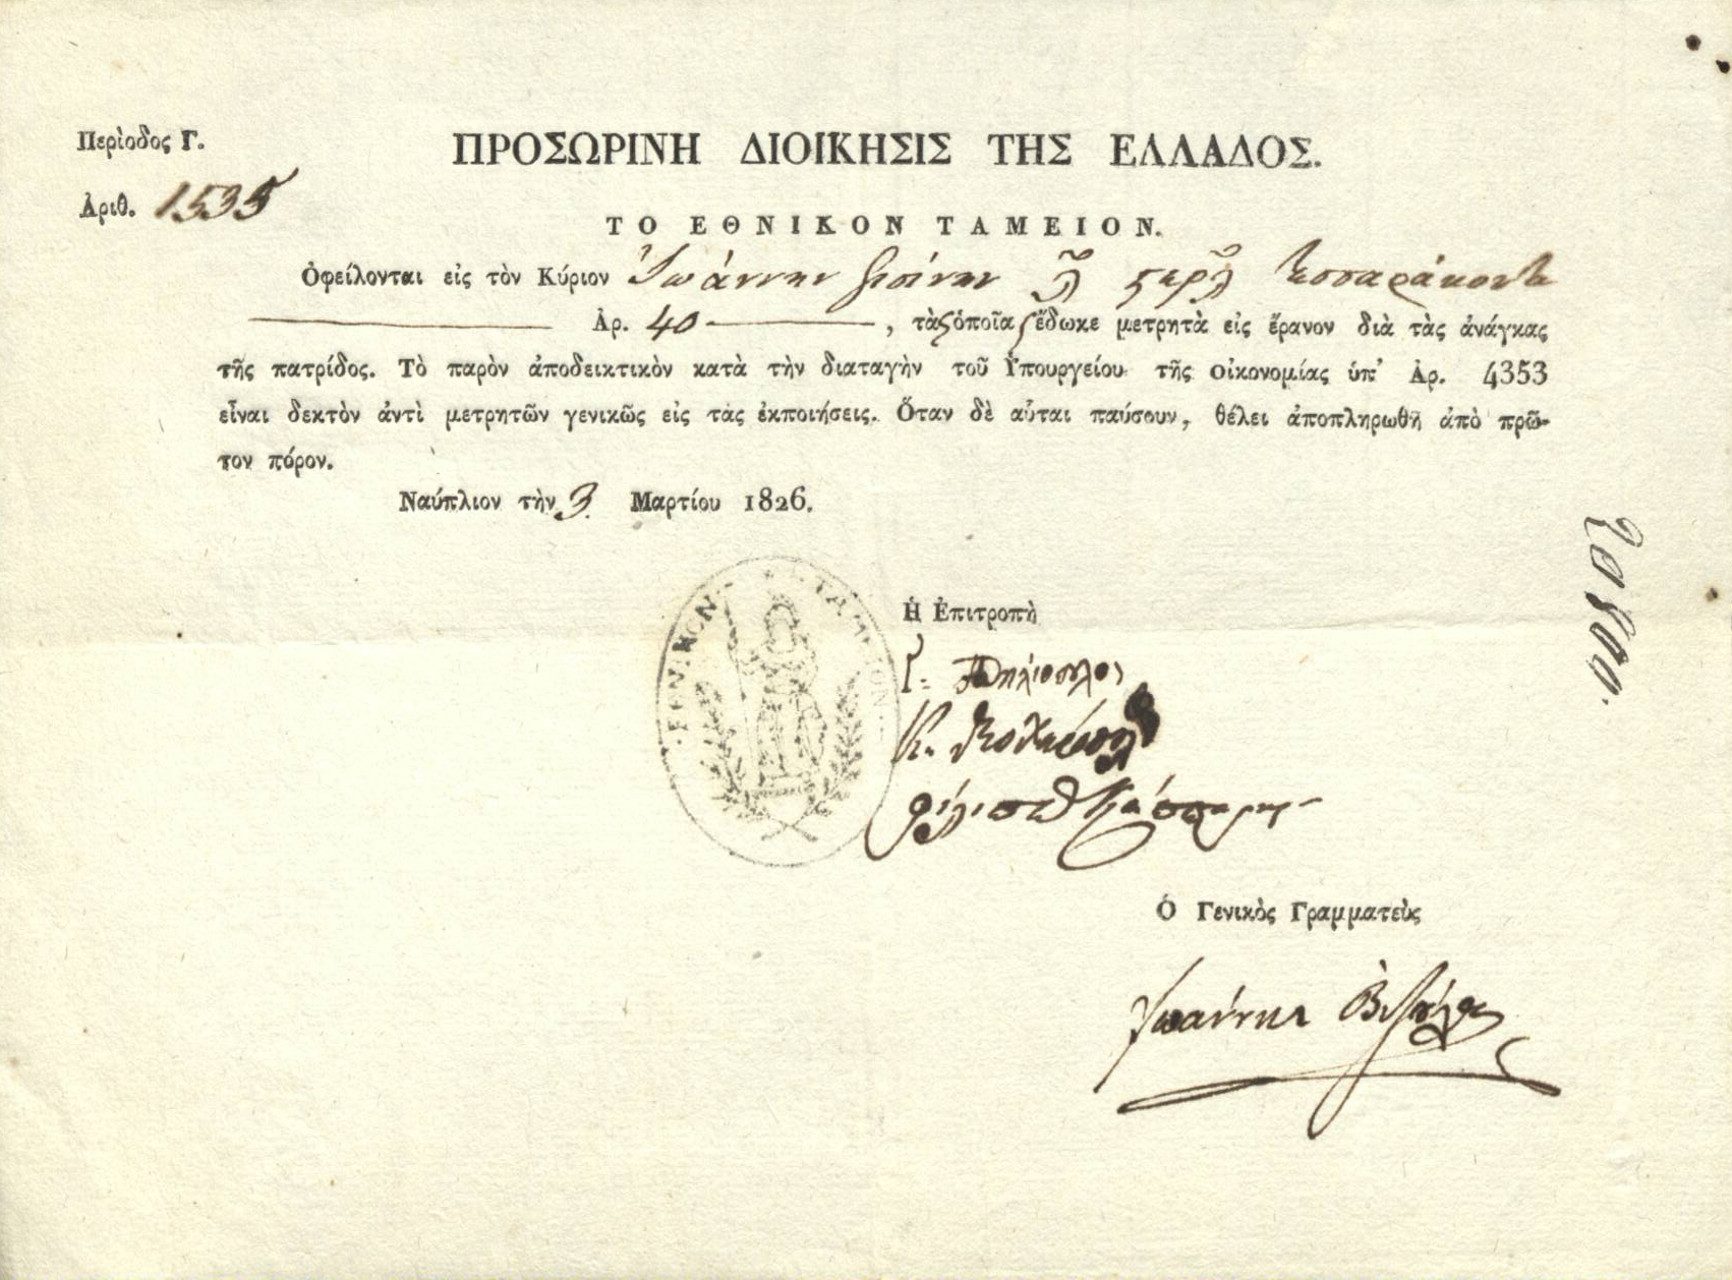 Περίοδος Γ.
ΠΡΟΣΩΡΙΝΗ ΔΙΟΙΚΗΣΙΣ ΤΗΣ ΕΛΛΑΔΟΣ.
Ἀριθ. 1535
ΤΟ ΕΘΝΙΚΟΝ ΤΑΜΕΙΟΝ.
Ὀφείλονται εἰς τὸν Κύριον Ἰωάννην
Ἀρ. 40 , τὰς ὁποῖας ἔδωκε μετρητὰ εἰς ἔρανον διὰ τὰς ἀνάγκας
τῆς πατρίδος. Τὸ παρὸν ἀποδεικτικὸν κατὰ τὴν διαταγὴν τοῦ Ὑπουργείου τῆς οἰκονομίας ὑπ' Ἀρ. 4353
εἶναι δεκτὸν ἀντὶ μετρητῶν γενικῶς εἰς τὰς ἐκποιήσεις. Ὅταν δὲ αὗται παύσουν, θέλει ἀποπληρωθῆ ἀπὸ πρῶ-
τον πόρον.
Ναύπλιον τὴν 3 Μαρτίου 1826.
ΕΘΝΙΚΟΝ ΤΑΜΕΙΟΝ
Ἡ Ἐπιτροπὴ
Ὁ Γενικὸς Γραμματεὺς
Ἰωάννης